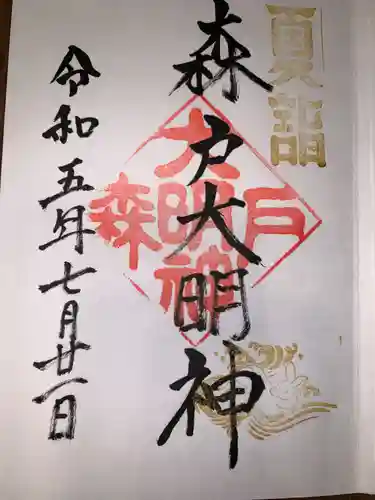 夏詣
森戸大明神
大明神
森
戸
令和五年七月廿一日